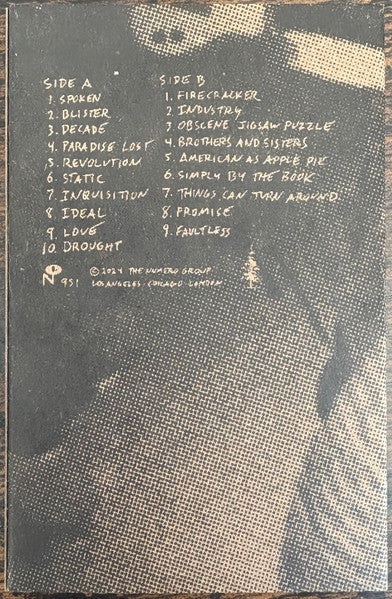 SIDE A
1. SPOKEN
2. BLISTER
3. DECADE
4. PARADISE LOST
5. REVOLUTION
6. STATIC
7. INQUISITION
8. IDEAL
9. LOVE
10. DROUGHT
SIDE B
1. FIRECRACKER
2. INDUSTRY
3. OBSCENE JIGSAW PUZZLE
4. BROTHERS AND SISTERS
5. AMERICAN AS APPLE PIE
6. SIMPLY BY THE BOOK
7. THINGS CAN TURN AROUND
8. PROMISE
9. FAULTLESS
N 951
© 2024 THE NUMERO GROUP
LOS ANGELES · CHICAGO · LONDON